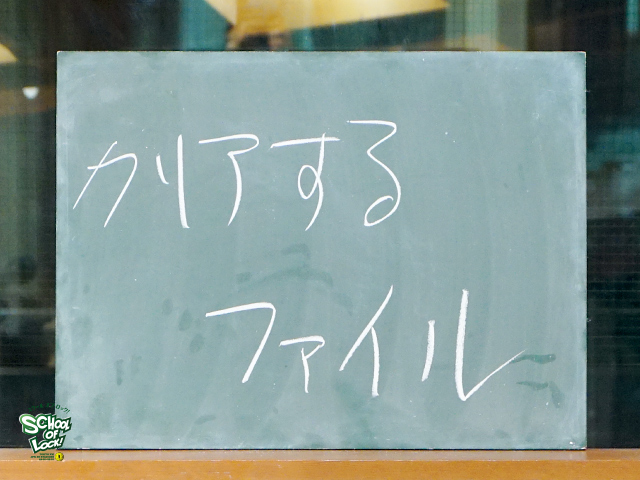 クリアする
ファイル
SCHOOL
OF
LOCK!